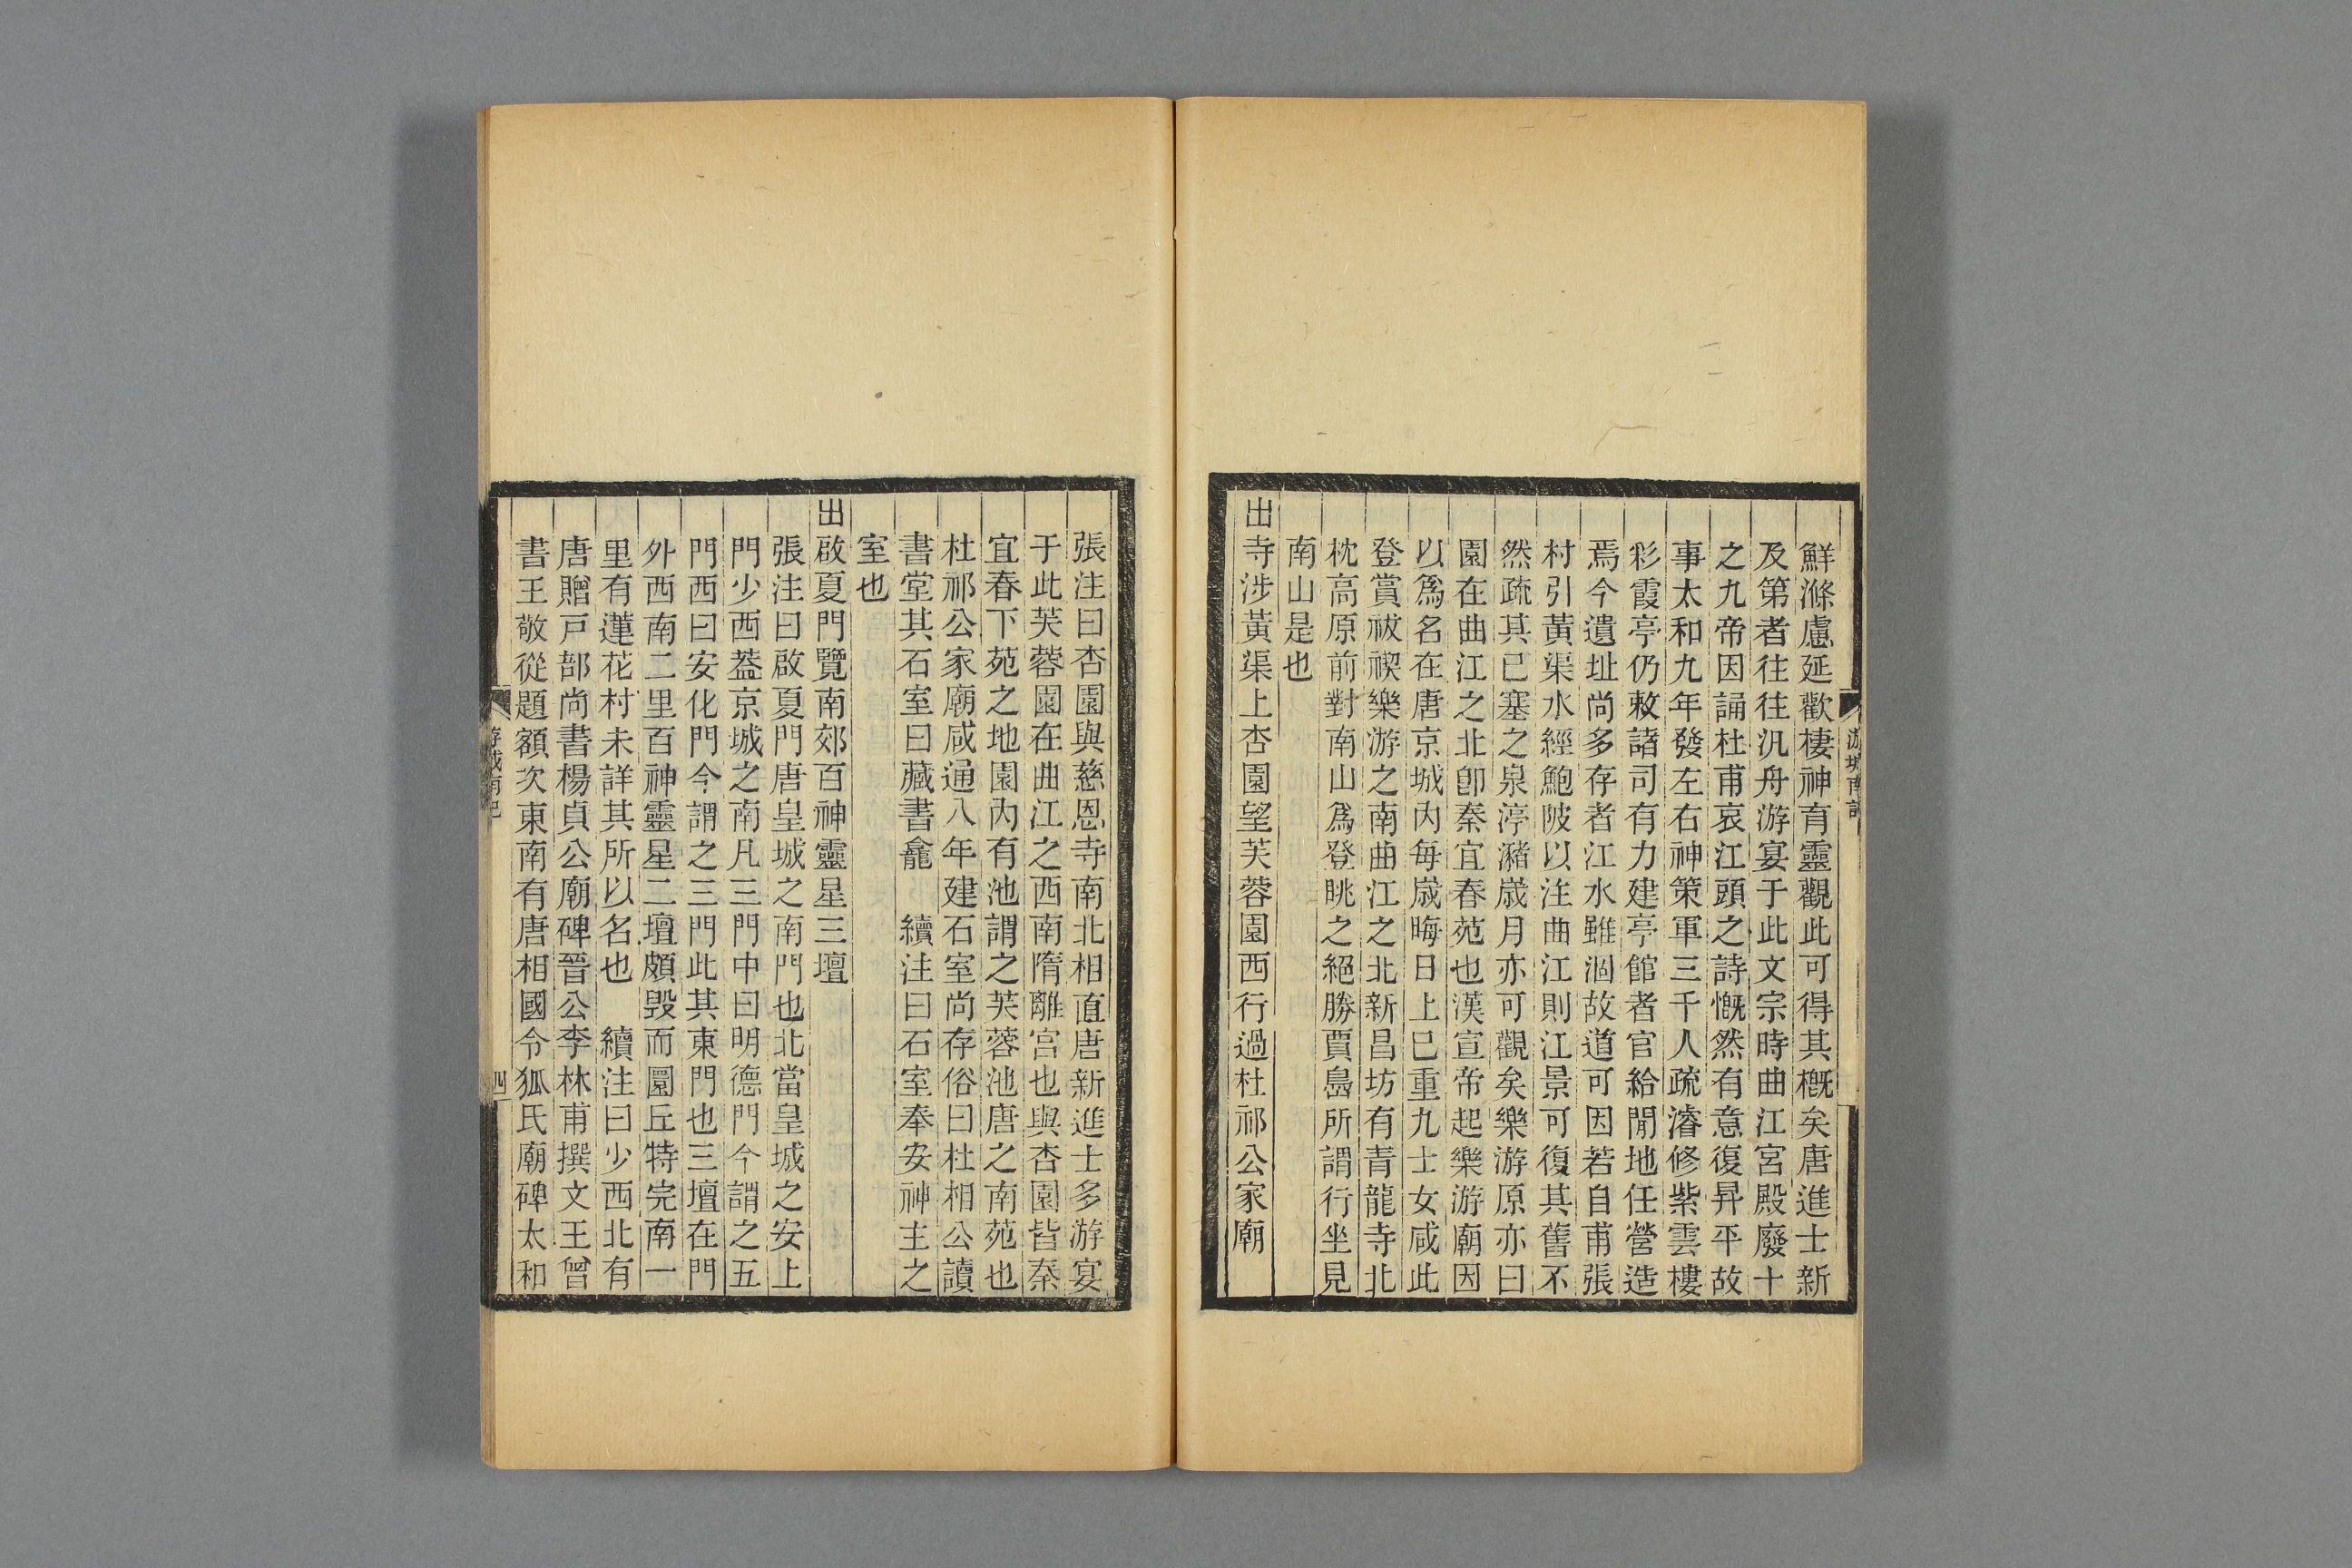 游城南記
鮮滌慮延歡棲神育靈觀此可得其槪矣唐進士新
及第者往往汎舟游宴于此文宗時曲江宮殿廢十
之九帝因誦杜甫哀江頭之詩慨然有意復昇平故
事太和九年發左右神策軍三千人疏濬修紫雲樓
彩霞亭仍敕諸司有力建亭館者官給閒地任營造
焉今遺址尚多存者江水雖涸故道可因若自甫張
村引黃渠水經鮑陂以注曲江則江景可復其舊不
然疏其已塞之泉渟瀦嵗月亦可觀矣樂游原亦曰
園在曲江之北卽秦宜春苑也漢宣帝起樂游廟因
以爲名在唐京城內每嵗晦日上巳重九士女咸此
登賞祓禊樂游之南曲江之北新昌坊有青龍寺北
枕高原前對南山爲登眺之絕勝賈島所謂行坐見
南山是也
出寺涉黃渠上杏園望芙蓉園西行過杜祁公家廟
張注曰杏園與慈恩寺南北相直唐新進士多游宴
于此芙蓉園在曲江之西南隋離宮也與杏園皆秦
宜春下苑之地園內有池謂之芙蓉池唐之南苑也
杜祁公家廟咸通八年建石室尚存俗曰杜相公讀
書堂其石室曰藏書龕　續注曰石室奉安神主之
室也
出啟夏門覽南郊百神靈星三壇
張注曰啟夏門唐皇城之南門也北當皇城之安上
門少西葢京城之南凡三門中曰明德門今謂之五
門西曰安化門今謂之三門此其東門也三壇在門
外西南二里百神靈星二壇頗毀而圜丘特完南一
里有蓮花村未詳其所以名也　續注曰少西北有
唐贈戸部尚書楊貞公廟碑晉公李林甫撰文王曾
書王敬從題額次東南有唐相國令狐氏廟碑太和
游城南記
四